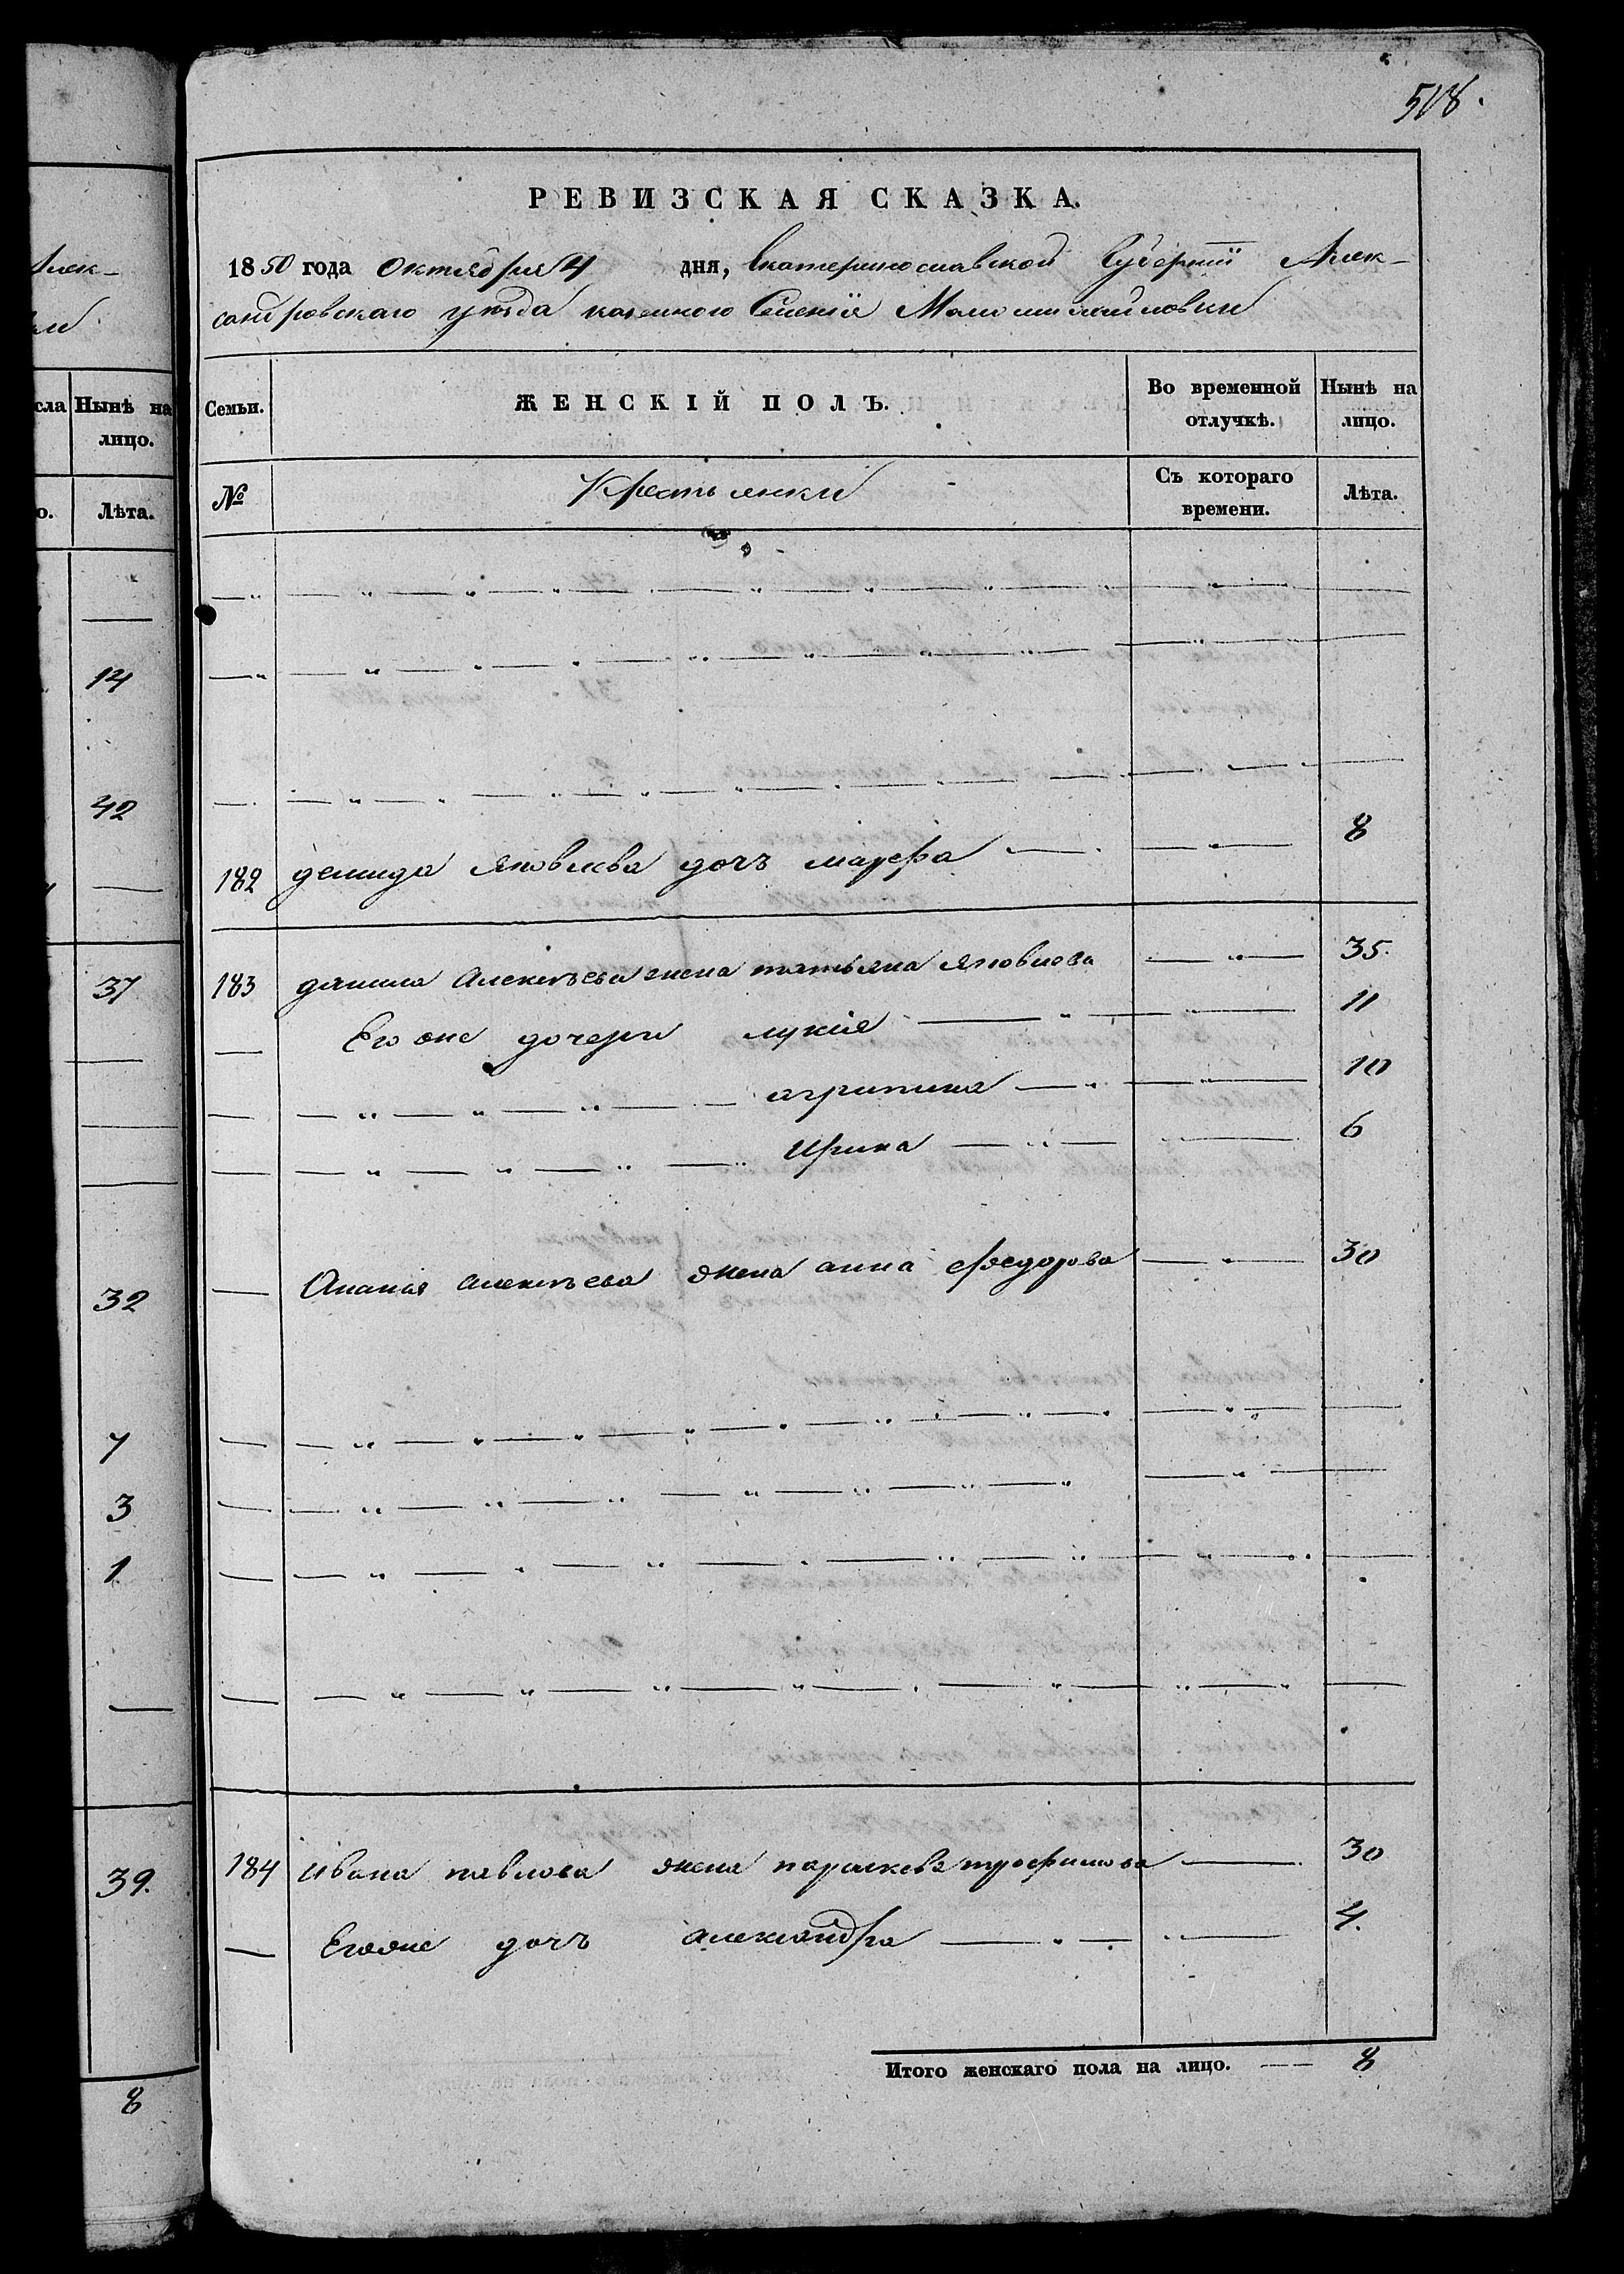 508.
РЕВИЗСКАЯ СКАЗКА.
1850 года Октября 4 дня, Екатеринославской Губернiи Алек-
сандровскаго уѣзда казенного Селенiя Маломихайловки
Семьи. ЖЕНСКIЙ ПОЛЪ. Во временной отлучкѣ. Нынѣ на лицо.
№ Крестьянки Съ котораго времени. Лѣта.
182 демида Яковлева дочъ марфа 8
183 данила Алексѣева жена татьяна яковлева 35.
Его же дочери лукiя 11
агрипина 10
Ирина 6
Ананiя алексѣева жена анна федорова 30
184 ивана павлова жена параскева трофимова 30
Егоже дочъ александра 4.
Итого женскаго пола на лицо. 8
Алек-
сла Нынѣ на
лицо.
о. Лѣта.
14
42
37
32
7
3
1
39.
8